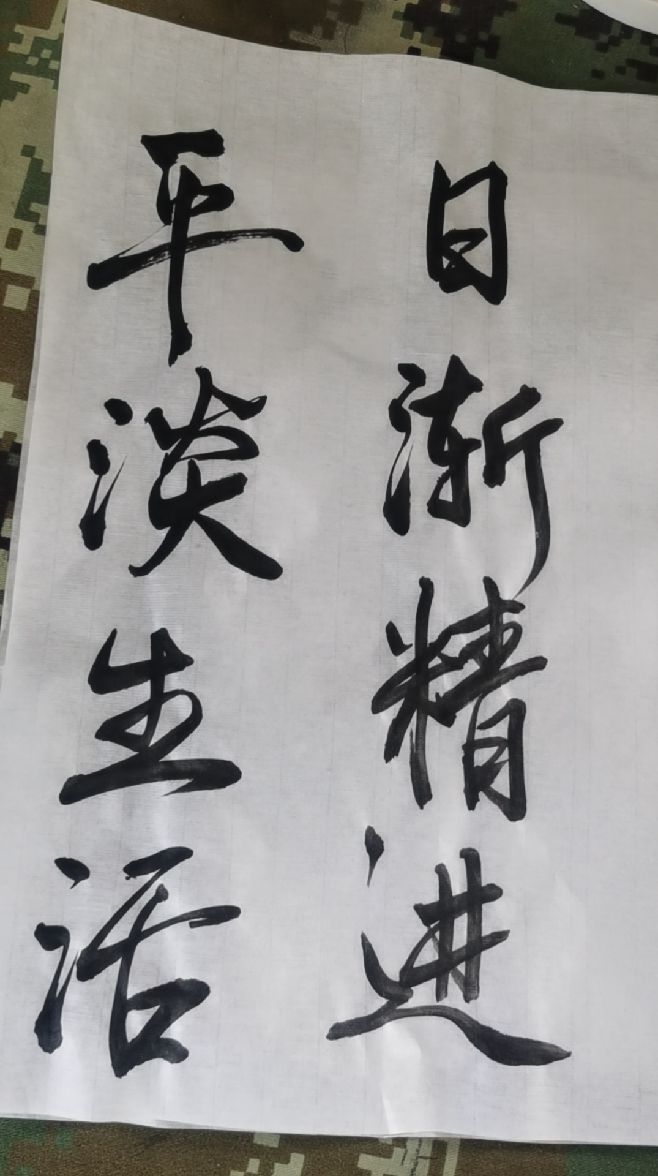 日渐精进
平淡生活